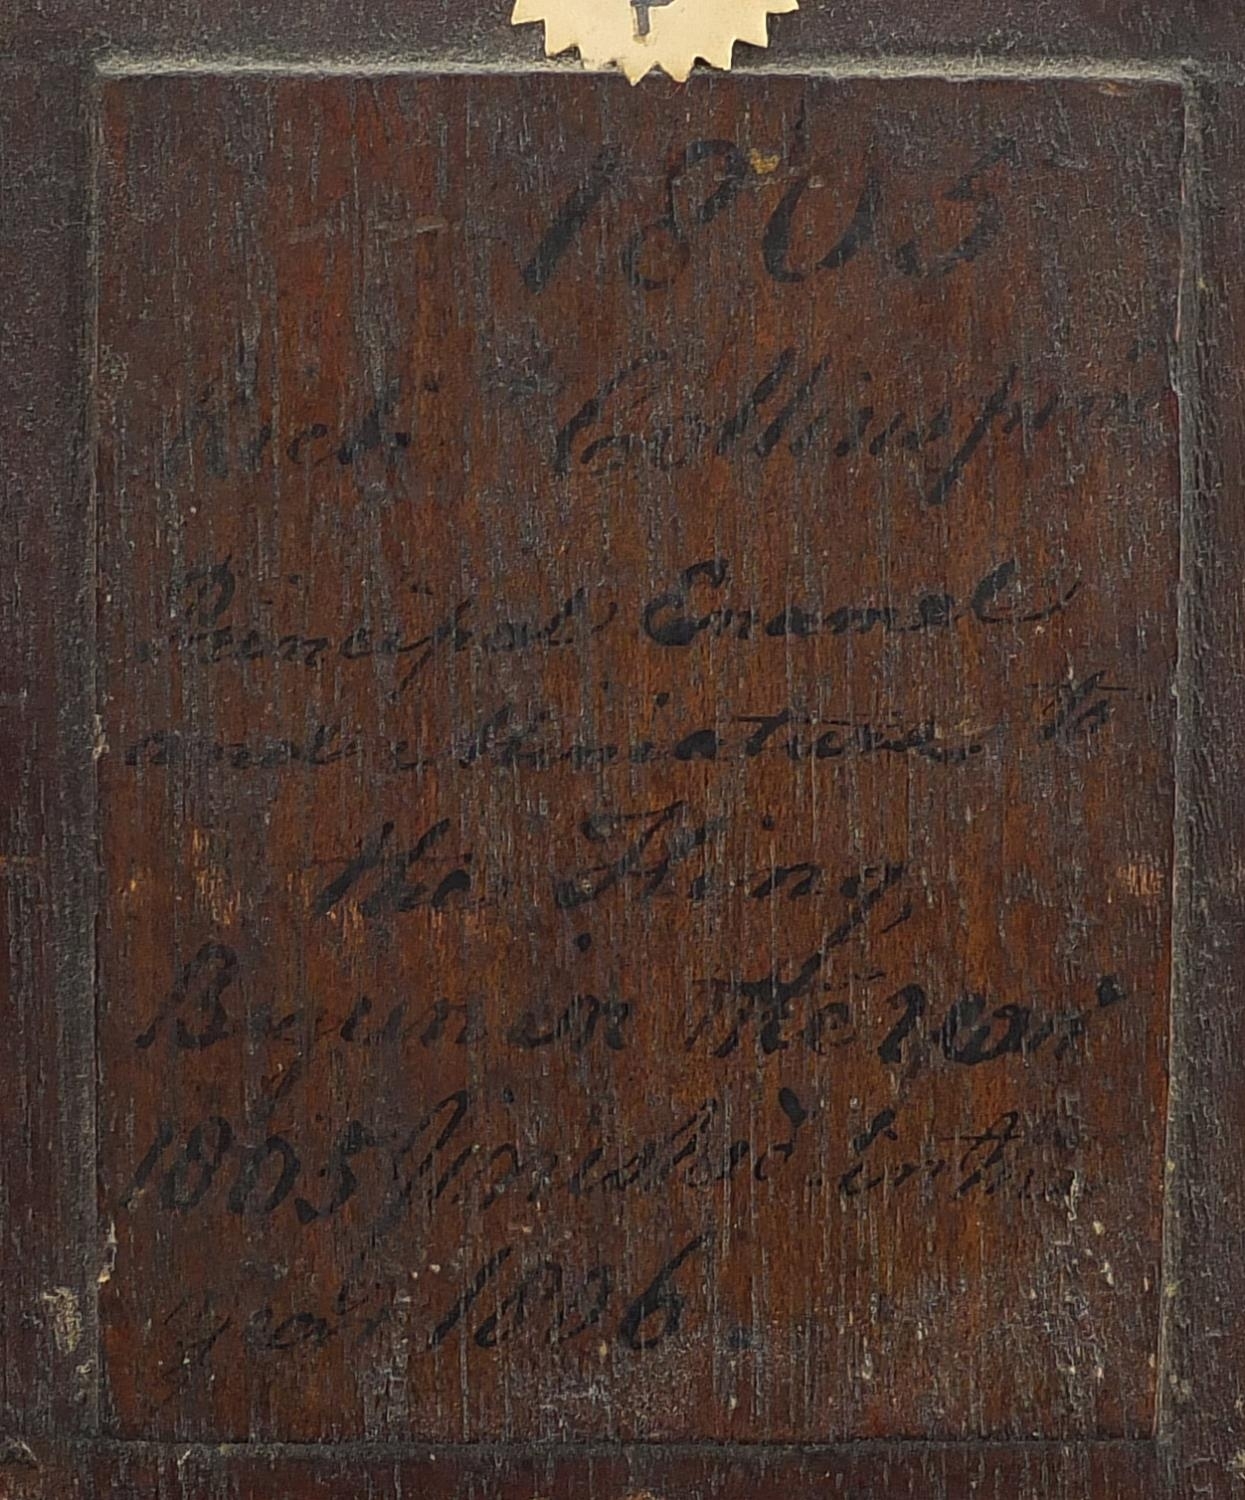 P
1805
Rich Collins pinx
Principal Enamel
and Miniature to
the King,
Begun in the year
1805 finished in the
year 1806.